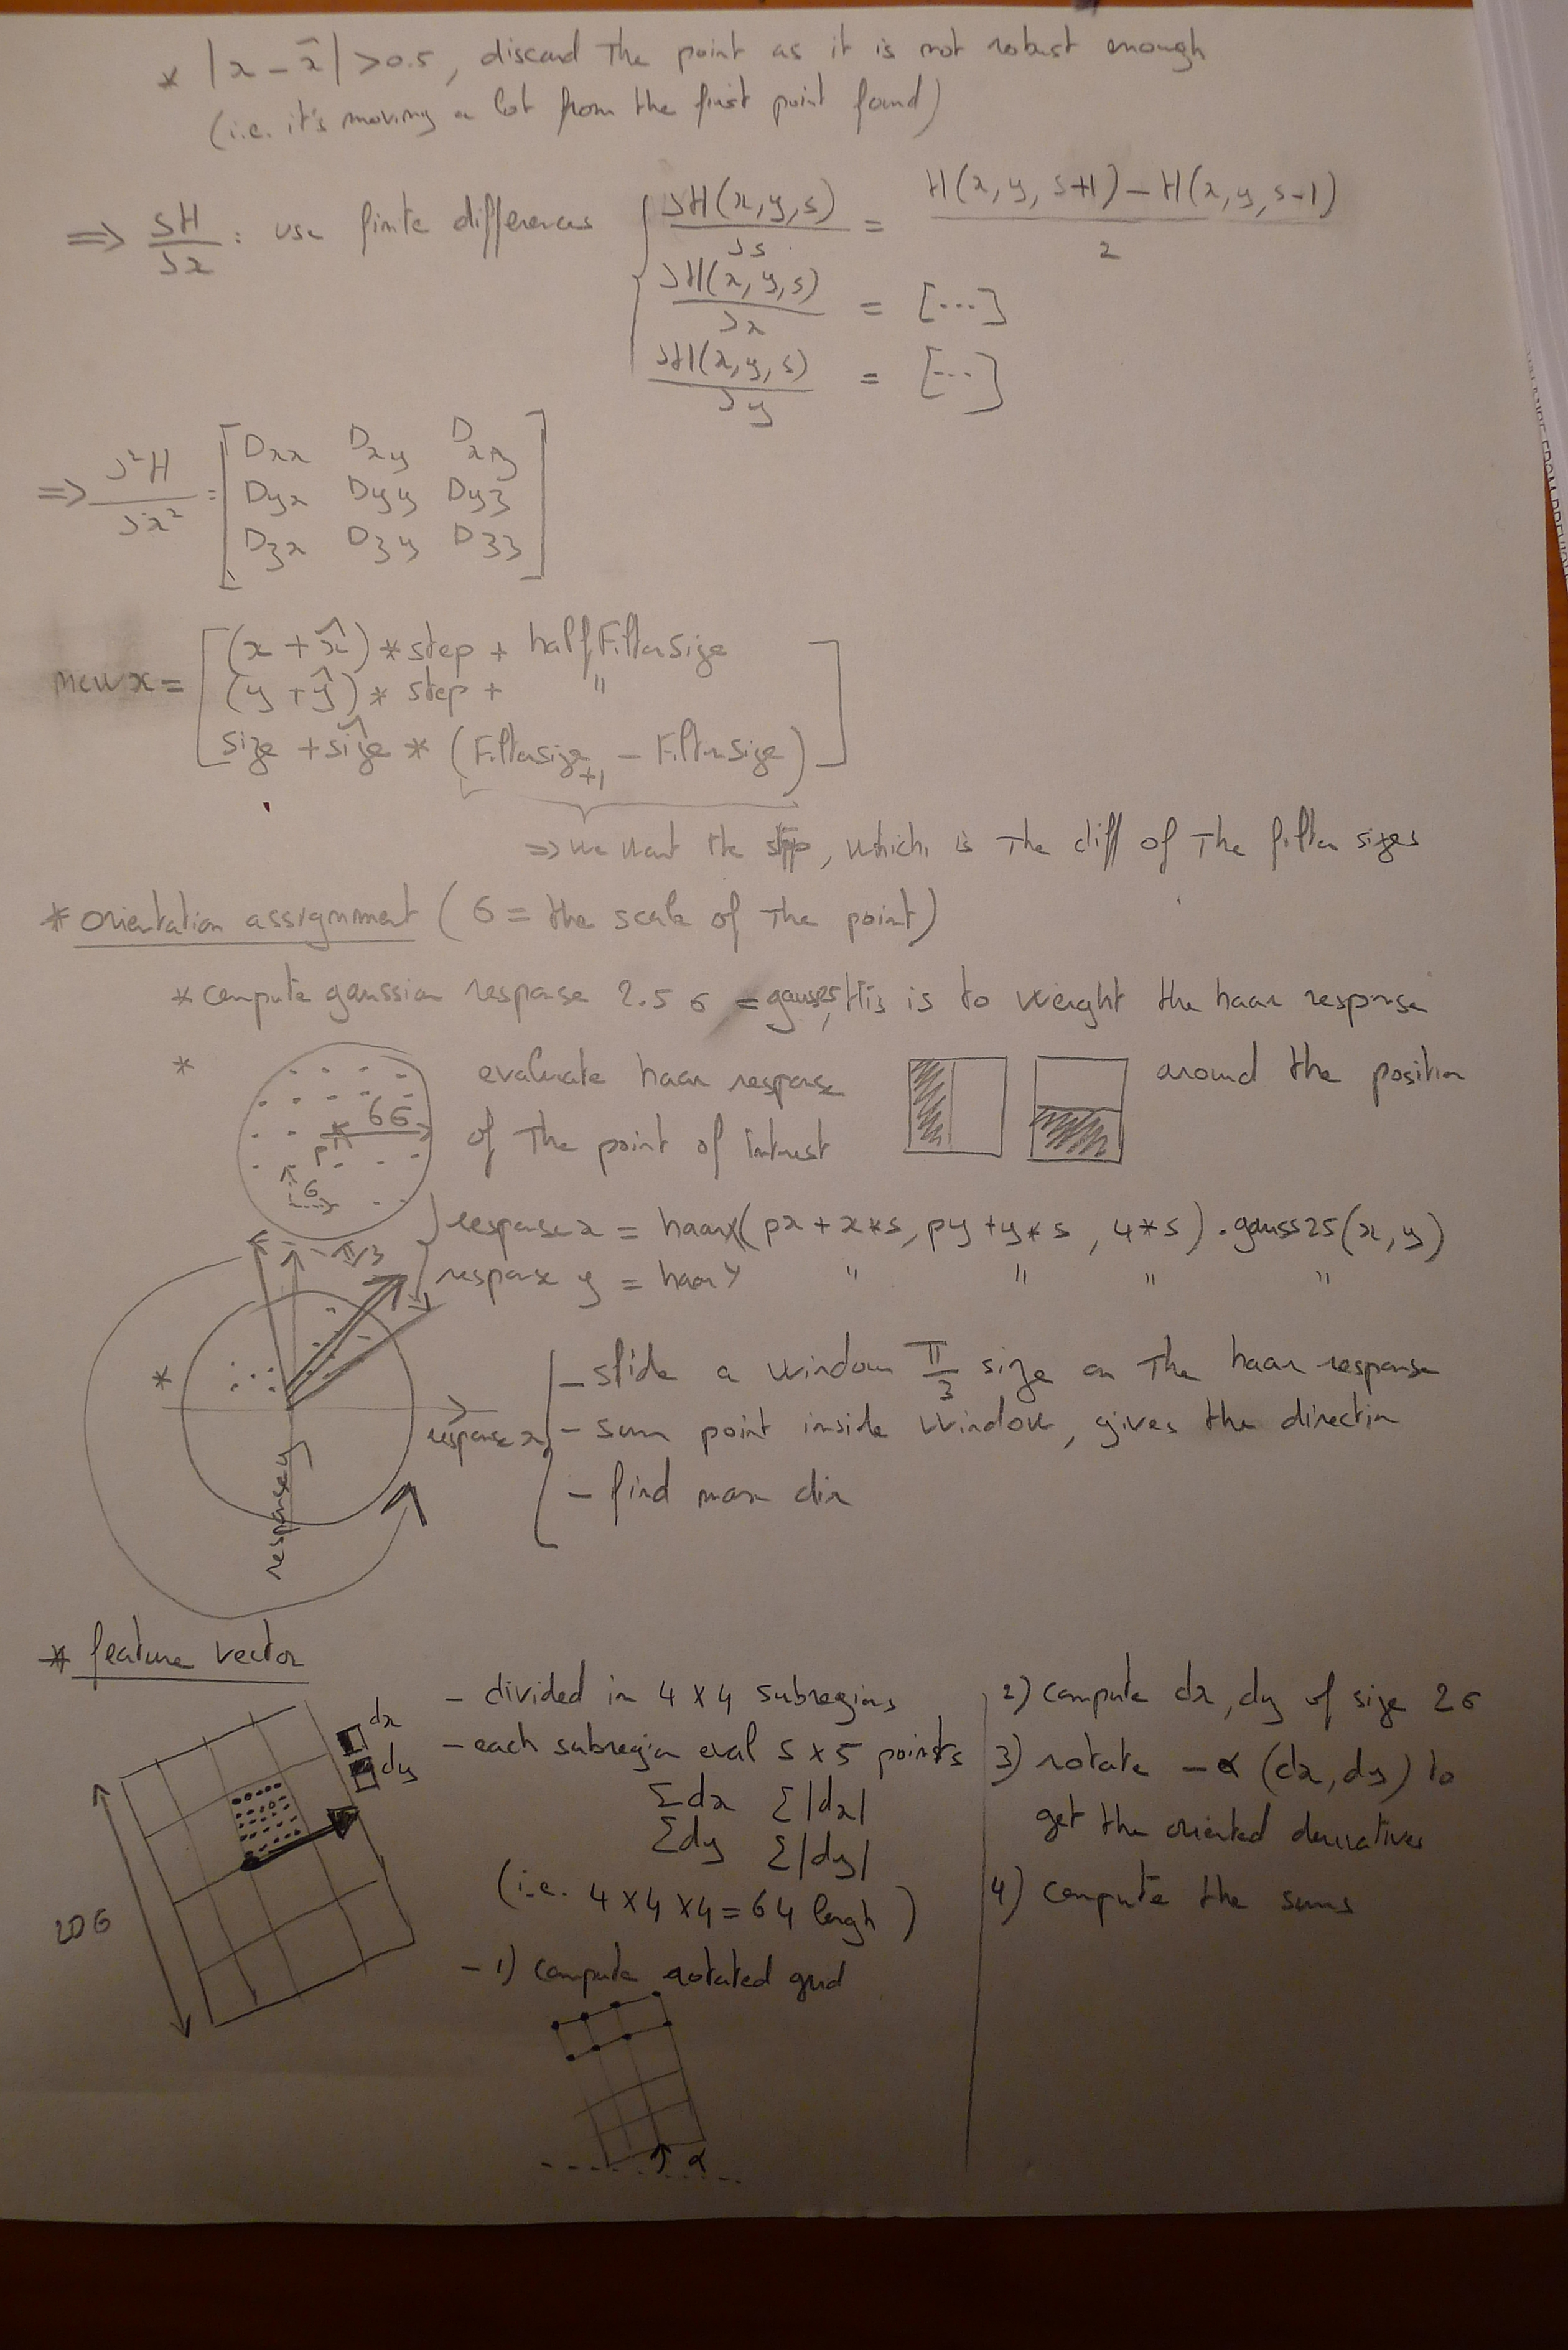 * |x - x̂| > 0.5, discard the point as it is not robust enough
(i.e. it's moving a lot from the first point found)
=> δH/δx : use finite differences { δH(x,y,s)/δs = (H(x, y, s+1) - H(x, y, s-1))/2
δH(x, y, s)/δx = [...]
δH(x, y, s)/δy = [...]
=> δ²H/δx² = [ Dxx Dxy Dxz
Dyx Dyy Dyz
Dzx Dzy Dzz ]
new x = [ (x + x̂) * step + halfFilterSize
(y + ŷ) * step + "
size + siẑe * (FilterSize+1 - FilterSize) ]
=> we want the step, which is the diff of the filter sizes
* orientation assignment (σ = the scale of the point)
* compute gaussian response 2.5 σ = gauss25, this is to weight the haar response
* 6σ p σ evaluate haar response around the position
of the point of interest
response x = haarX(px + x*s, py + y*s, 4*s) . gauss25(x, y)
response y = haarY " " " "
π/3
* - slide a window π/3 size on the haar response
response x - sum point inside window, gives the direction
response y - find max dir
* feature vector
dx
dy
20σ
- divided in 4 x 4 subregions
- each subregion eval 5 x 5 points
Σdx Σ|dx|
Σdy Σ|dy|
(i.e. 4 x 4 x 4 = 64 lengh)
- 1) compute rotated grid
α
2) compute dx, dy of size 2σ
3) rotate -α (dx, dy) to
get the oriented derivatives
4) compute the sums